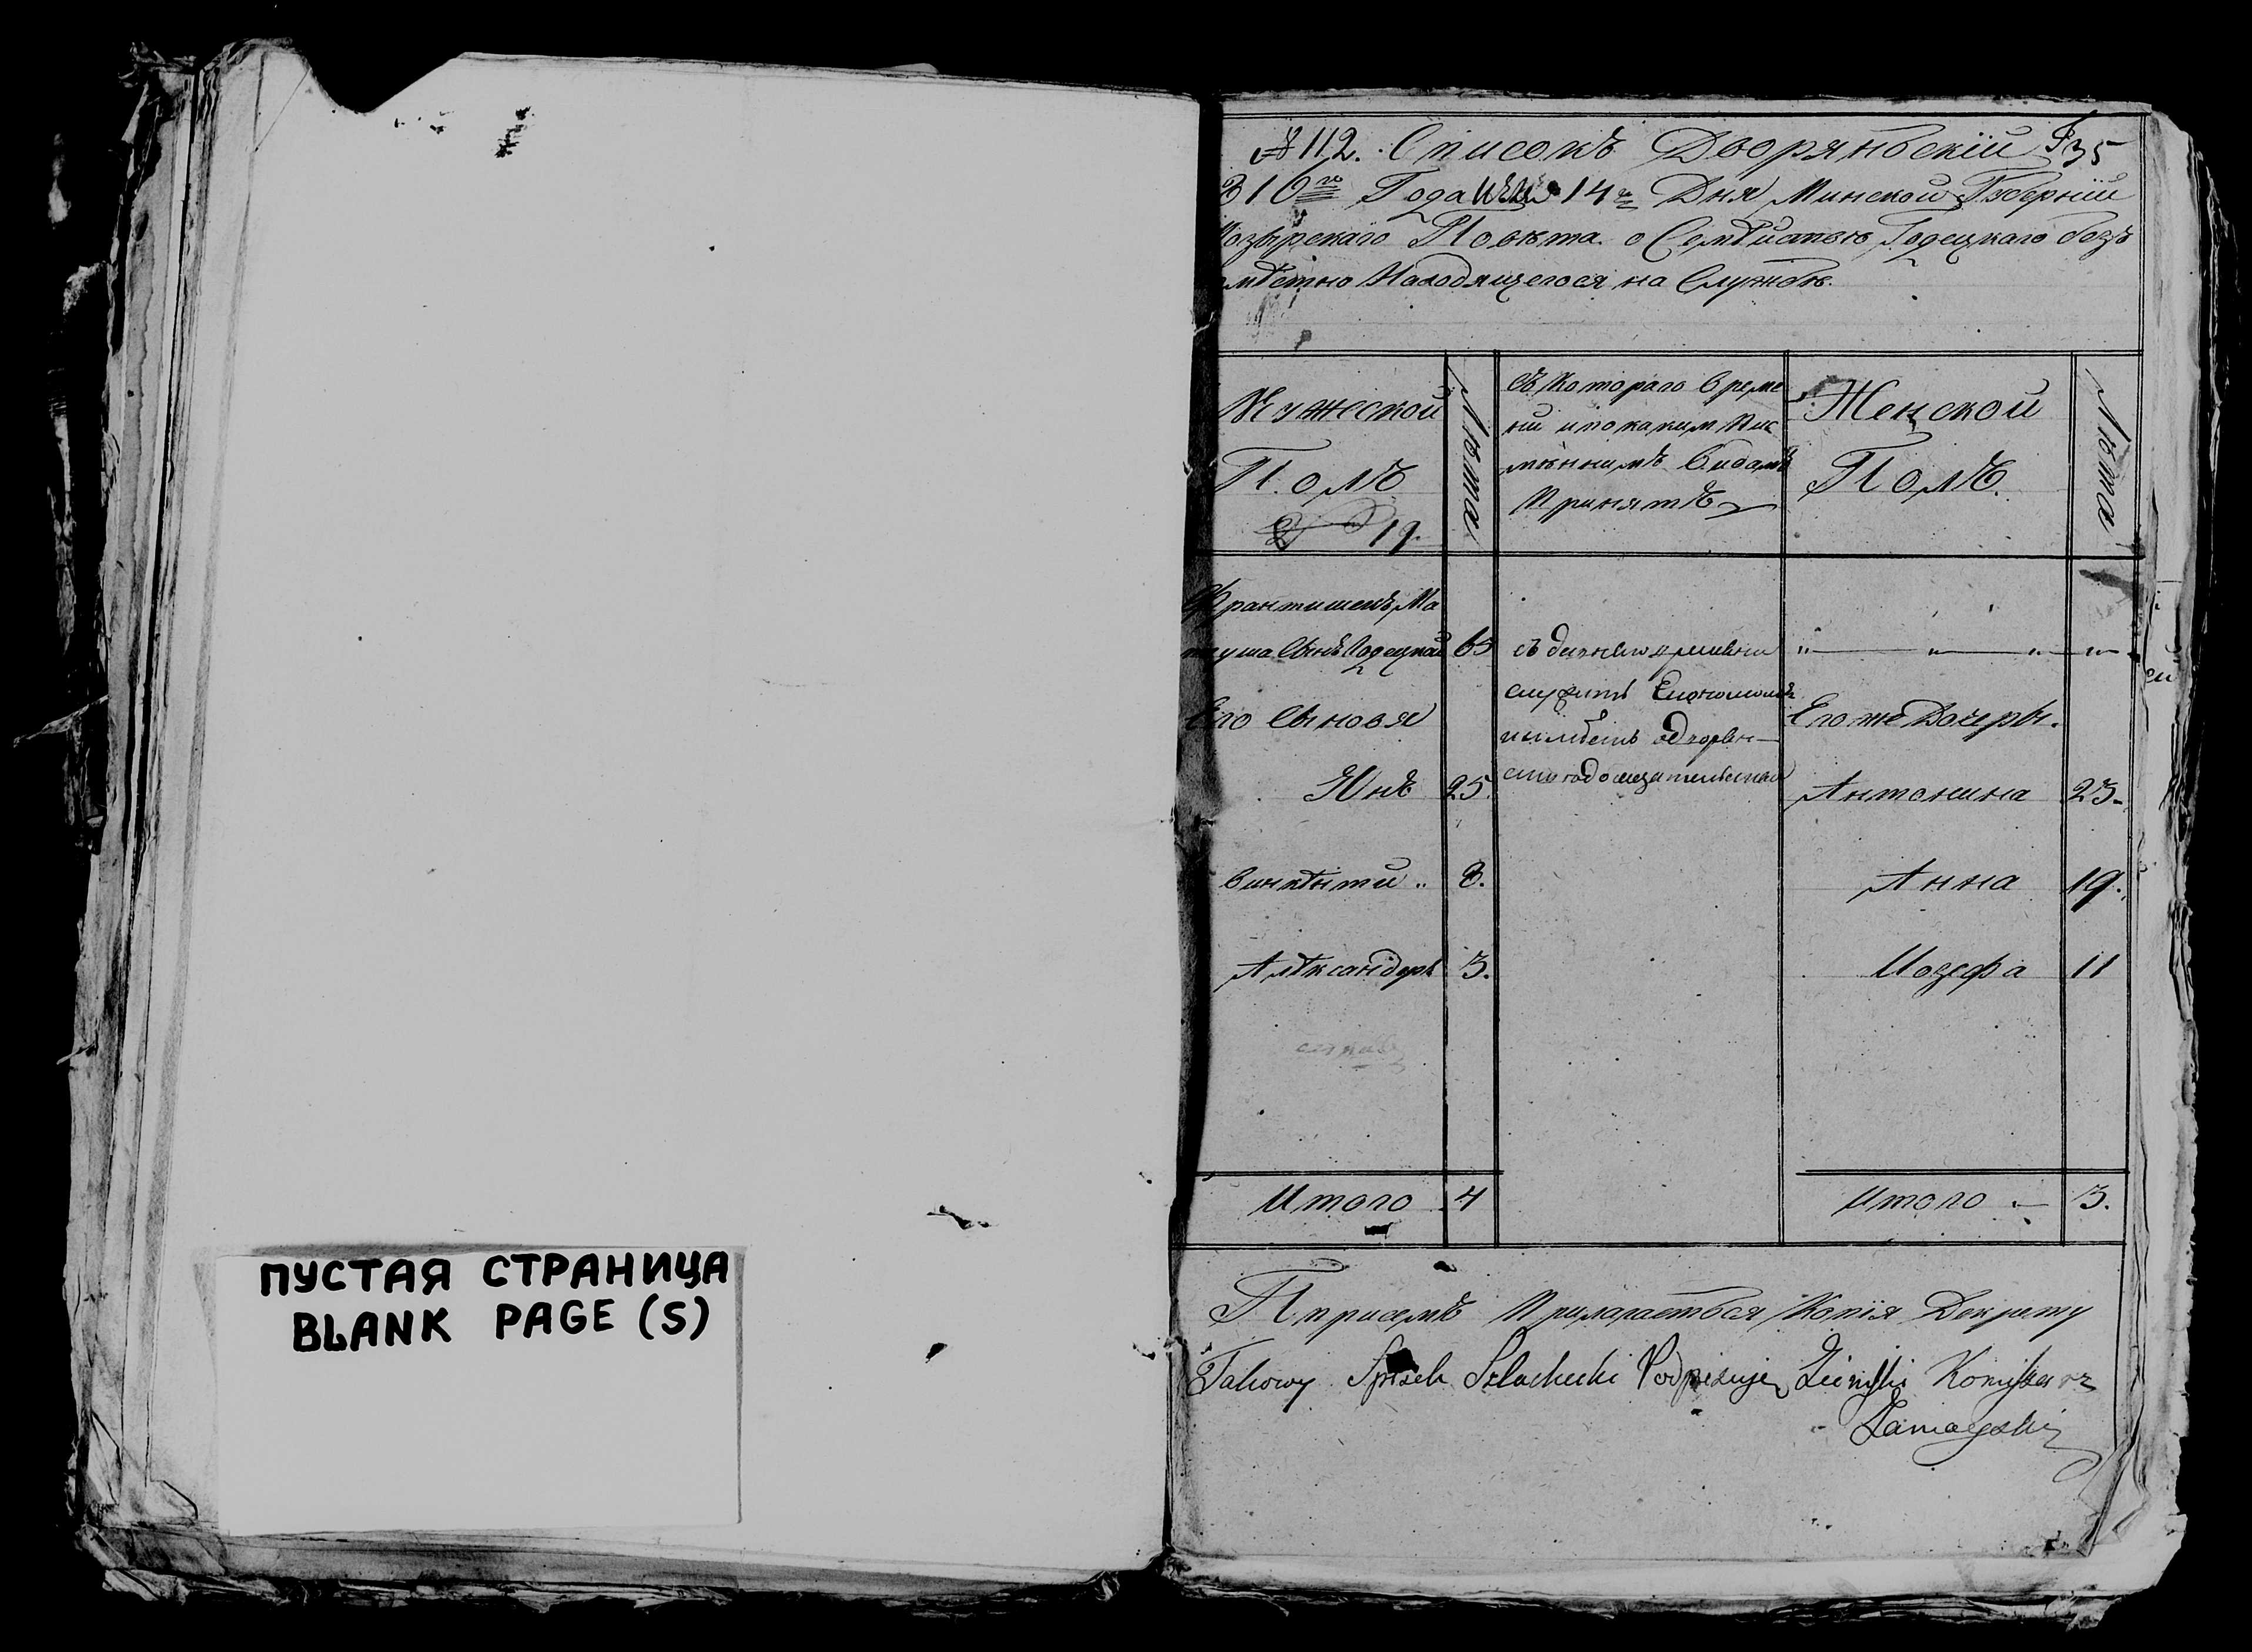 ПУСТАЯ СТРАНИЦА
BLANK PAGE (S)
№ 112. Списокъ Дворяньскій 35
816го Года 14го Дня Минской Губерніи
озырскаго Повѣта о Годецкаго безъ
мѣстно Находящегося на Службѣ.
Мужеской
Полъ
19.
Лѣта
Съ Котораго Време
ни и по каким Пис
мѣннимъ Видамъ
Принятъ
Женской
Полъ.
Лѣта
Франтишекъ Ма
теуша Сынъ Годецкой 65 съ
Его Сыновя служитъ Економомъ Его же Дочеры.
имѣетъ
Янъ 25. Антонина 23.
Винкѣнтій 8. Анна 19.
Алѣксандеръ 3. Иозефа 11
Итого 4 Итого 3.
При семъ Прилагаеться Копія Декрету
Takowy Spisek Szlachecki Podpisuję Komissarz